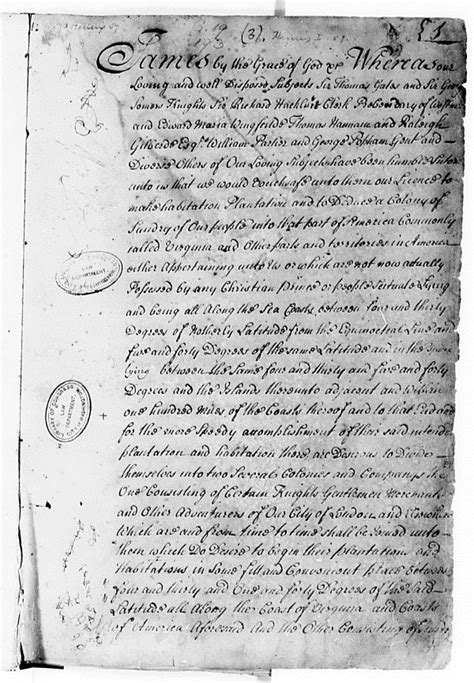 (3)
James by the Grace of God &c Whereas our
Loving and well Disposed Subjects Sir Thomas Gates and Sir Geo
Somers Knights Sir Richard Clerk Prebendary of
and Edward Maria Wingfeilde Thomas Hannam and Raleigh
Gilberde Esqrs. William Parker and George Popham Gent and
Diverse Others of Our Loving Subjects have been humble
unto us that we would Vouchsafe unto them our Licence to
make habitation Plantation and to Deduce a Colony of
Sundry of Our people into that part of America Commonly
called Virginia and Other parts and territories in America
either Appertaining unto Us or which are not now actually
Possessed by any Christian Prince or people Scituate Lying
and being all Along the Sea Coasts between four and thirty
Degrees of Northerly Latitude from the Equinoctial Line and
five and forty Degrees of the same Latitude and in the
lying between the same four and thirty and five and forty
Degrees and the Islands thereunto adjacent and within
one hundred Miles of the Coasts thereof and to that End and
for the more Speedy accomplishment of their said intended
plantation and habitation there are Desirous to Divide
themselves into two Several Colonies and Companys the
One Consisting of Certain Knights Gentlemen Merchants
and Other Adventurers of Our City of London and Elsewhere
Which are and from time to time shall be joined unto
them which Do Desire to begin their plantation and
Habitations in Some fitt and Convenient place between
four and thirty and One and forty Degrees of the Said
Latitude all Along the Coast of Virginia and Coasts
of America Aforesaid And the Other Consisting of
LAW
DEPARTMENT
LIBRARY OF CONGRESS
LAW
DEPARTMENT